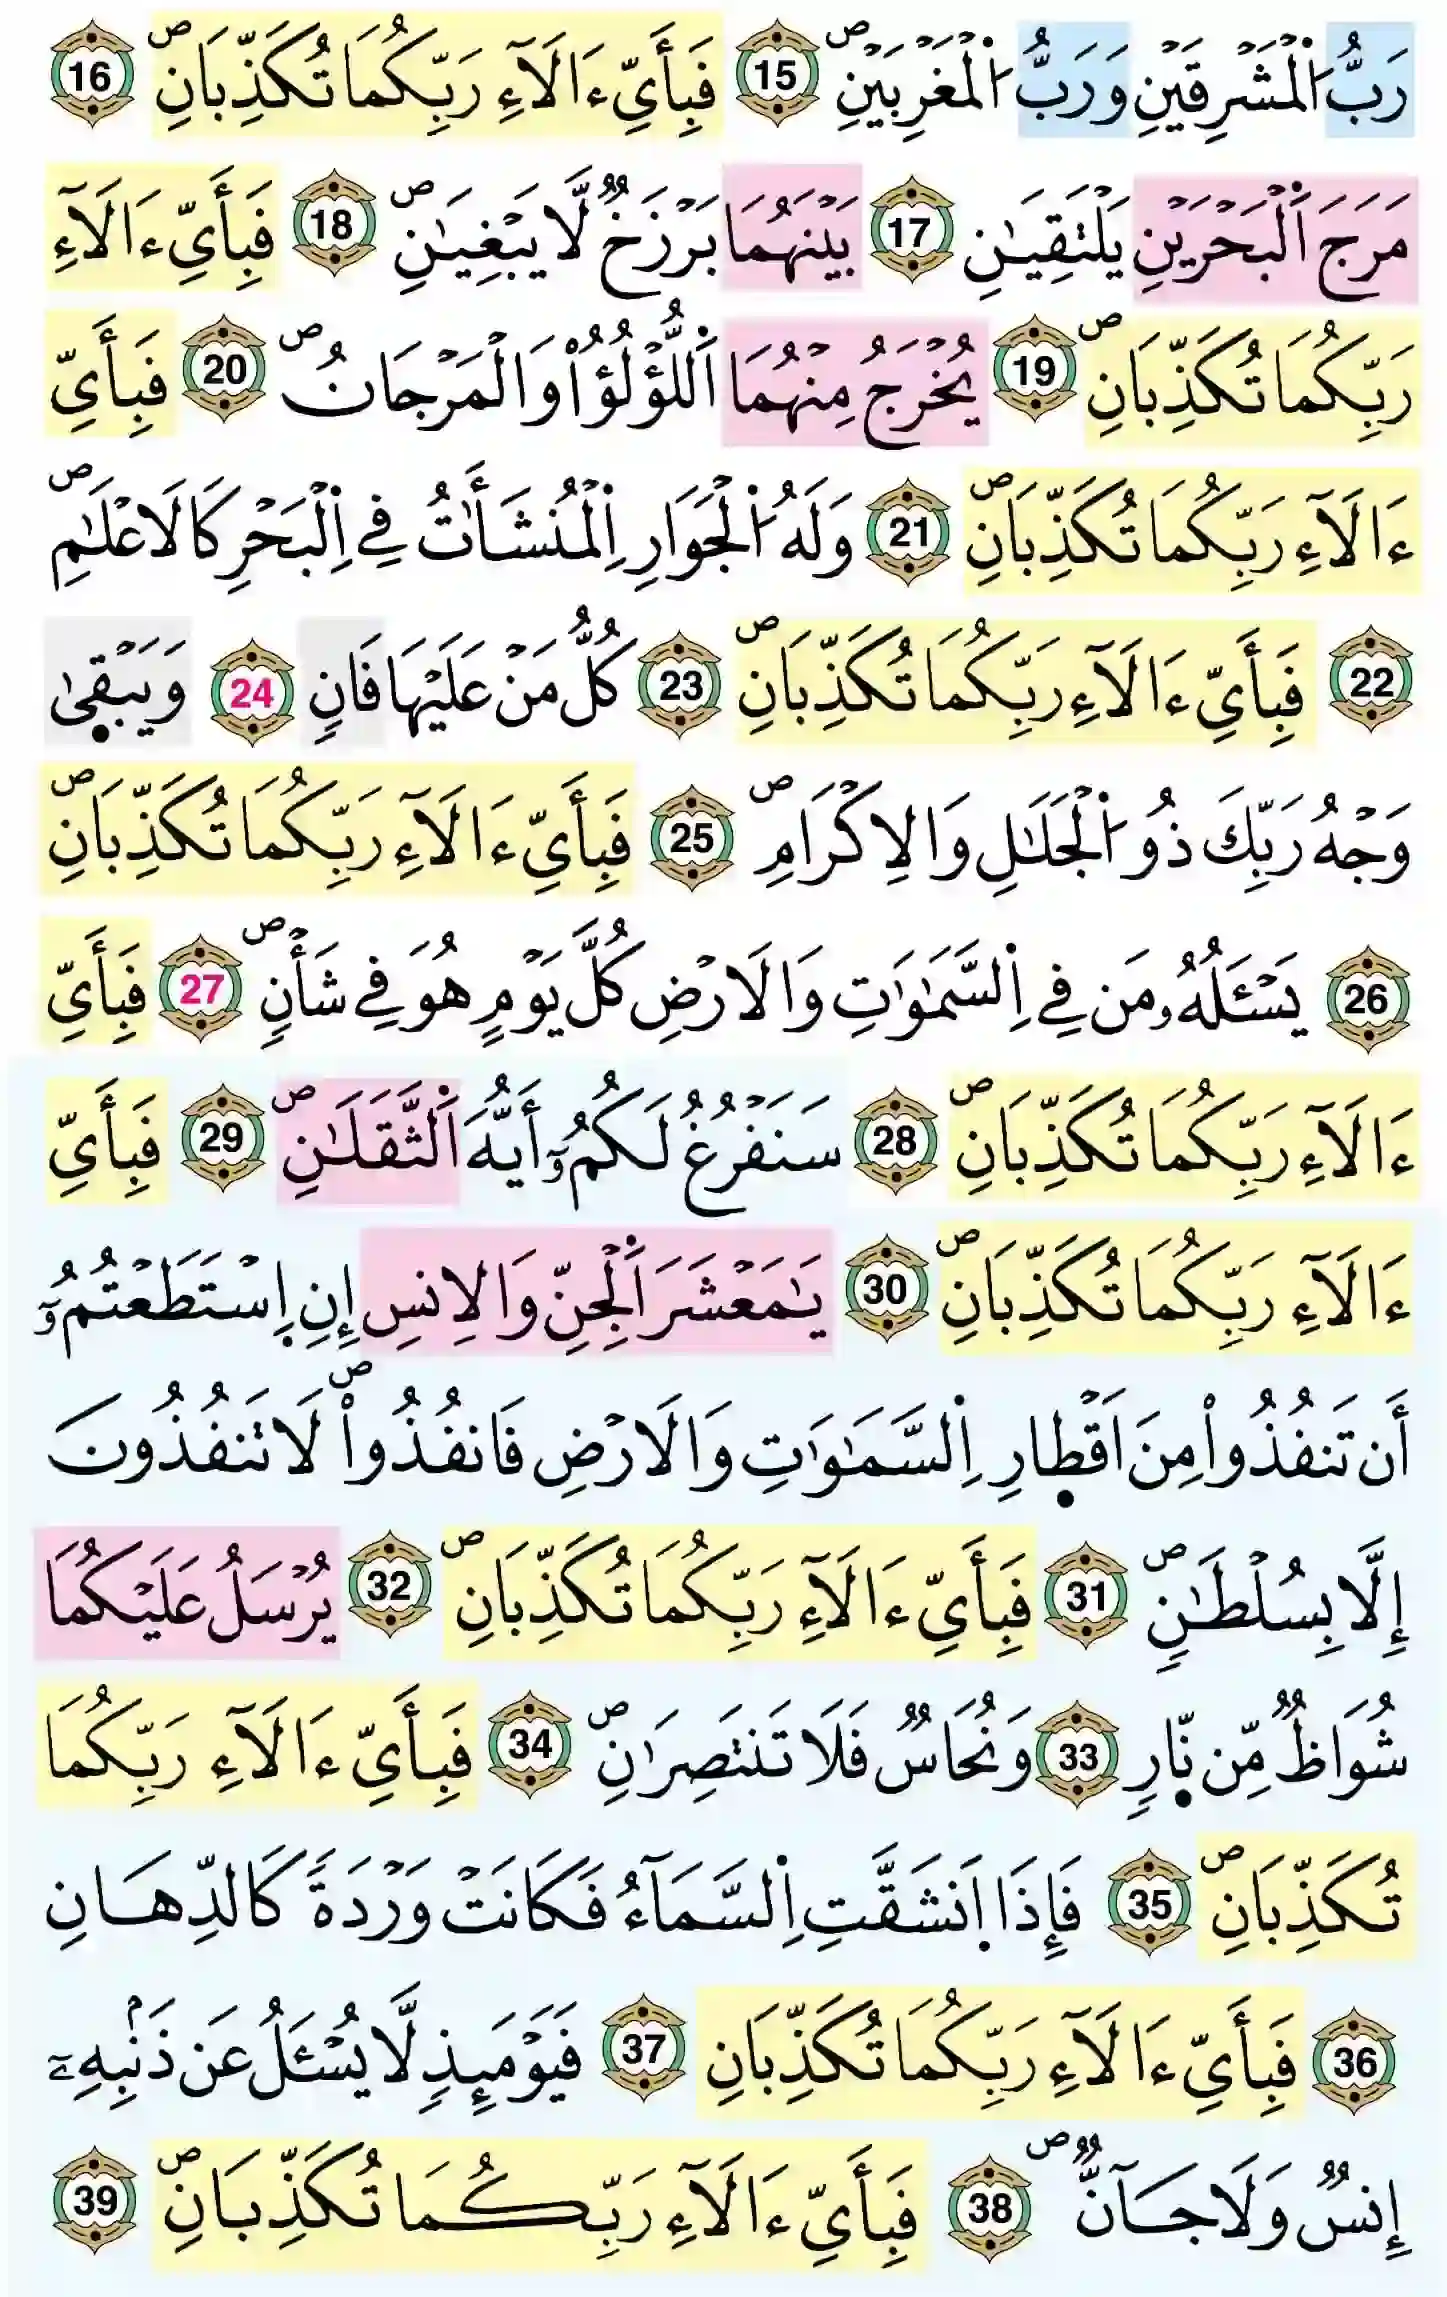 رَبُّ اُ۬لْمَشْرِقَيْنِ وَرَبُّ اُ۬لْمَغْرِبَيْنِۖ 15 فَبِأَيِّ ءَالَآءِ رَبِّكُمَا تُكَذِّبَانِۖ 16
مَرَجَ اَ۬لْبَحْرَيْنِ يَلْتَقِيَٰنِ 17 بَيْنَهُمَا بَرْزَخٞ لَّا يَبْغِيَٰنِۖ 18 فَبِأَيِّ ءَالَآءِ
رَبِّكُمَا تُكَذِّبَانِۖ 19 يُخْرَجُ مِنْهُمَا اَ۬للُّؤْلُؤُاْ وَالْمَرْجَانُۖ 20 فَبِأَيِّ
ءَالَآءِ رَبِّكُمَا تُكَذِّبَانِۖ 21 وَلَهُ اُ۬لْجَوَارِ اِ۬لْمُنشَـَٔاتُ فِے اِ۬لْبَحْرِ كَالَاعْلَٰمِۖ
22 فَبِأَيِّ ءَالَآءِ رَبِّكُمَا تُكَذِّبَانِۖ 23 كُلُّ مَنْ عَلَيْهَا فَانٖ 24 وَيَبْق۪ىٰ
وَجْهُ رَبِّكَ ذُو اُ۬لْجَلَٰلِ وَالِاكْرَامِۖ 25 فَبِأَيِّ ءَالَآءِ رَبِّكُمَا تُكَذِّبَانِۖ
26 يَسْـَٔلُهُۥ مَن فِے اِ۬لسَّمَٰوَٰتِ وَالَارْضِ كُلَّ يَوْمٍ هُوَ فِے شَأْنٖۖ 27 فَبِأَيِّ
ءَالَآءِ رَبِّكُمَا تُكَذِّبَانِۖ 28 سَنَفْرُغُ لَكُمُۥٓ أَيُّهَ اَ۬لثَّقَلَٰنِۖ 29 فَبِأَيِّ
ءَالَآءِ رَبِّكُمَا تُكَذِّبَانِۖ 30 يَٰمَعْشَرَ اَ۬لْجِنِّ وَالِانسِ إِنِ اِ۪سْتَطَعْتُمُۥٓ
أَن تَنفُذُواْ مِنَ اَقْط۪ارِ اِ۬لسَّمَٰوَٰتِ وَالَارْضِ فَانفُذُواْۖ لَا تَنفُذُونَ
إِلَّا بِسُلْطَٰنٖۖ 31 فَبِأَيِّ ءَالَآءِ رَبِّكُمَا تُكَذِّبَانِۖ 32 يُرْسَلُ عَلَيْكُمَا
شُوَاظٞ مِّن نّ۪ارٖ 33 وَنُحَاسٞ فَلَا تَنتَصِرَٰنِۖ 34 فَبِأَيِّ ءَالَآءِ رَبِّكُمَا
تُكَذِّبَانِۖ 35 فَإِذَا اَ۪نشَقَّتِ اِ۬لسَّمَآءُ فَكَانَتْ وَرْدَةٗ كَالدِّهَانِ
36 فَبِأَيِّ ءَالَآءِ رَبِّكُمَا تُكَذِّبَانِ 37 فَيَوْمَئِذٖ لَّا يُسْـَٔلُ عَن ذَنۢبِهِۦٓ
إِنسٞ وَلَا جَآنّٞۖ 38 فَبِأَيِّ ءَالَآءِ رَبِّكُمَا تُكَذِّبَانِۖ 39